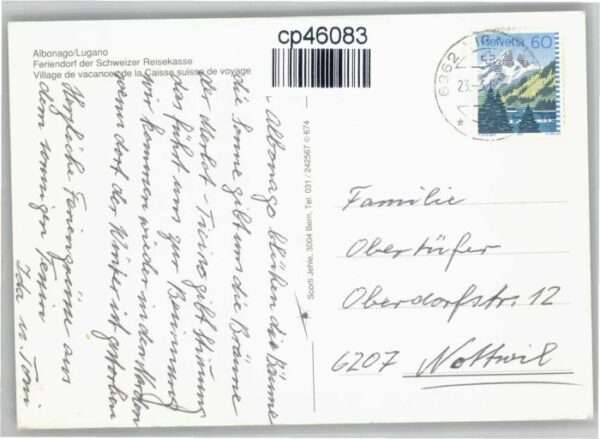 cp46083
Albonago/Lugano
Feriendorf der Schweizer Reisekasse
Village de vacances de la Caisse suisse de voyage
Helvetia 60
6962
23.
Albonago blühen die Bäume
die Sonne gibt uns die Bräume
der Merlot-Twino gibt Stimmung
das führt uns zur Besinnung
wir kommen wieder in den Norden
wenn dort der Winter ist gestorben
Herzliche Feriengrüsse aus
dem sonnigen Tessin
Ida u. Toni
Scotti Jehle, 3004 Bern, Tel. 031 / 242567 © 674
Familie
Obertüfer
Oberdorfstr. 12
6207 Nottwil